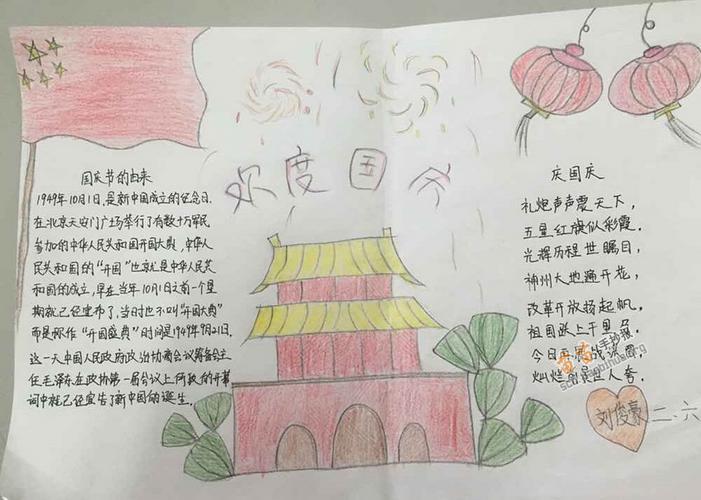 欢度国
国庆节的由来
1949年10月1日,是新中国成立的纪念日.
在北京天安门广场举行了有数十万军民
参加的中华人民共和国开国大典,中华人
民共和国的"开国"也就是中华人民共
和国的成立,早在当年10月1日之前一个星
期就已经宣布了,当时也不叫"开国大典"
而是称作"开国盛典"时间是1949年9月21日,
这一天中国人民政府政治协商会议筹备会主
任毛泽东在政协第一届会议上所致的开幕
词中就已经宣告了新中国的诞生.
庆国庆
礼炮声声震天下,
五星红旗似彩霞.
光辉历程世瞩目,
神州大地遍开花,
改革开放扬起帆,
祖国跃上千里
今日再
灿烂 世人夸.
手抄报
刘俊豪 二、六